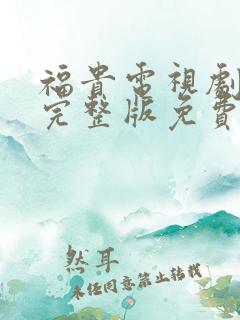 福貴電視劇
完整版免費
然耳
未任同意禁止转载